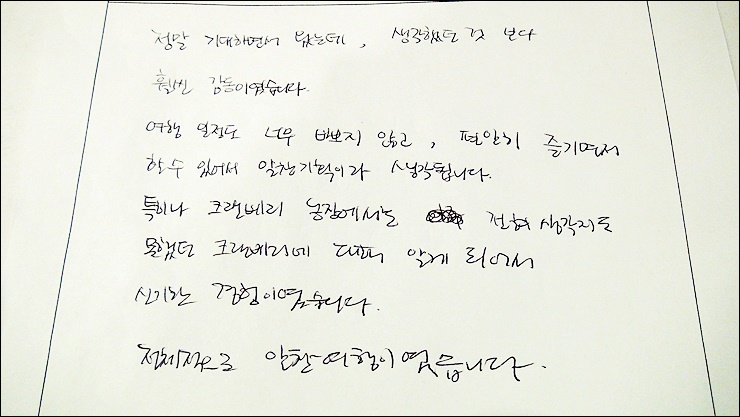 정말 기대하면서 왔는데, 생각했던 것 보다
훨씬 감동이였습니다.
여행 일정도 너무 바쁘지 않고, 편안히 즐기면서
할 수 있어서 알찬기획이라 생각됩니다.
특히나 크랜베리 농장에서는 전혀 생각지도
못했던 크랜베리에 대해 알게 되어서
신기한 경험이였습니다.
전체적으로 알찬여행이였습니다.